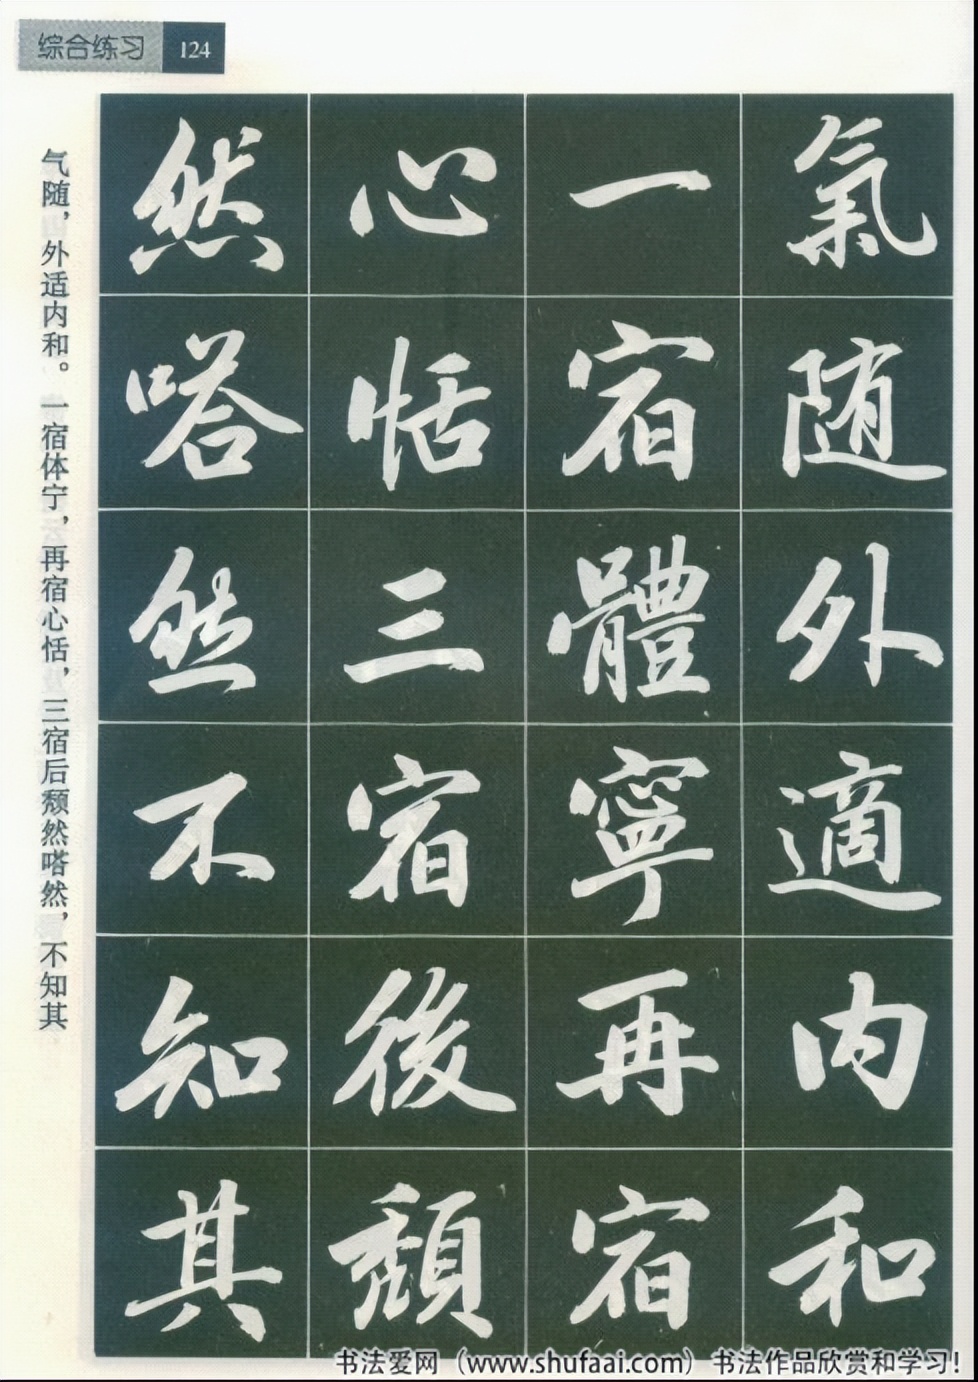 综合练习 124
氣随外適内和
一宿體寧再宿
心恬三宿後頹
然嗒然不知其
气随，外适内和。一宿体宁，再宿心恬，三宿后颓然嗒然，不知其
书法爱网（www.shufaai.com）书法作品欣赏和学习！